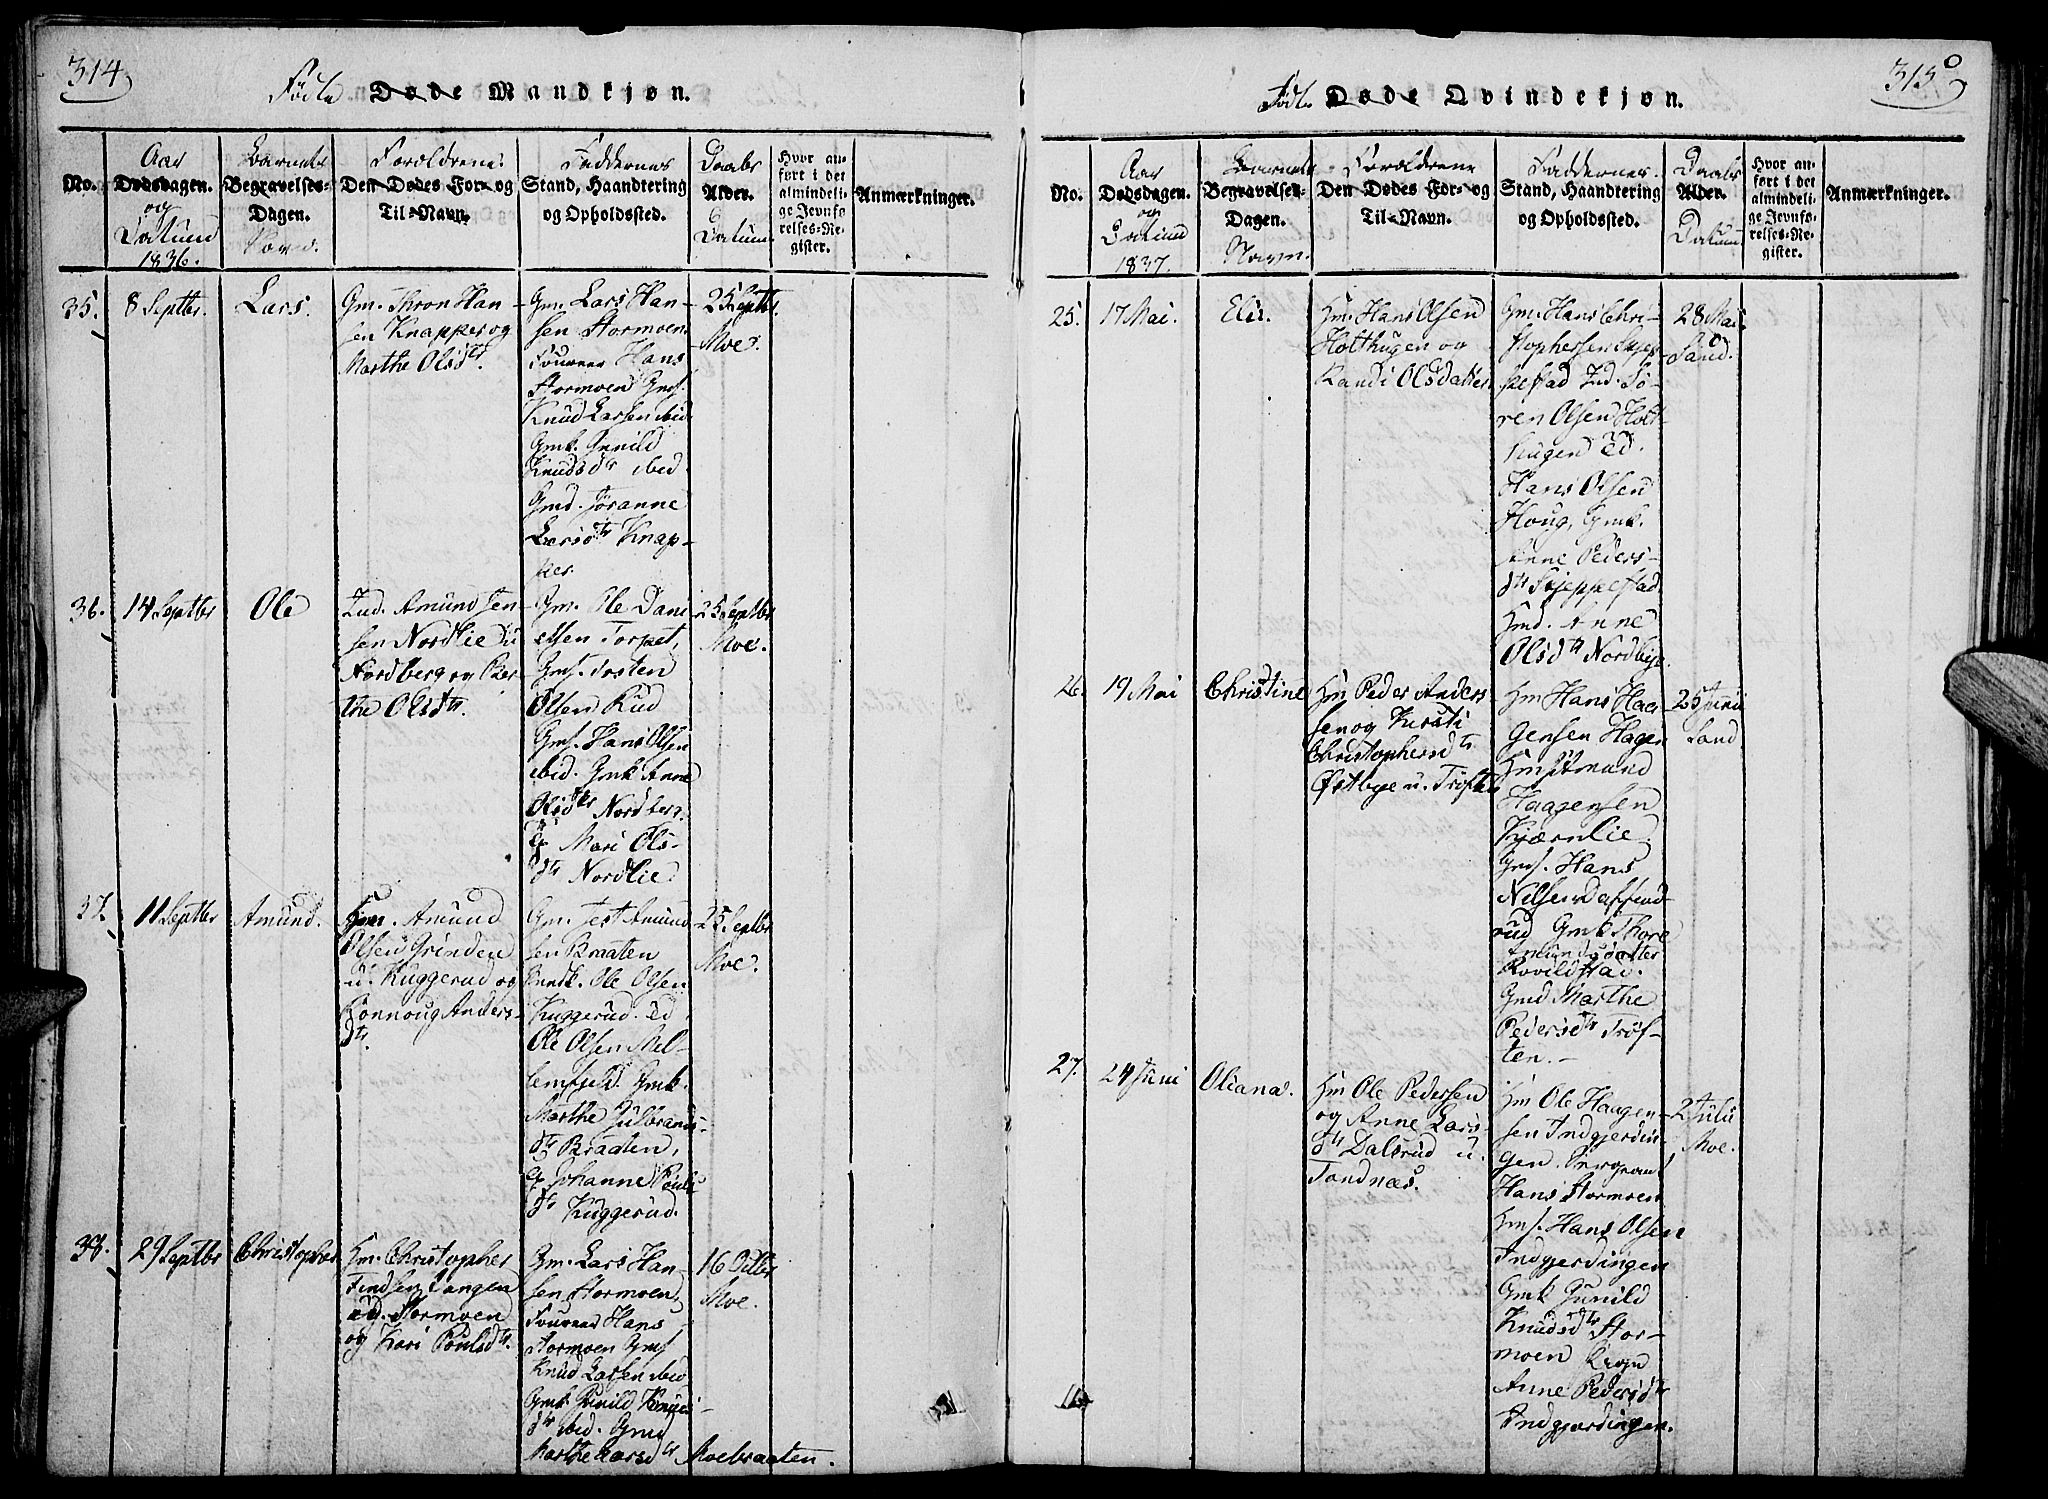 314
Fødte Døde Mandkjøn.
No.
Aar
Dødsdagen.
og
Datum
1836.
Barnets
Begravelses-
Dagen.
Forældrenes
Den Dødes For- og
Til-Navn.
Faddernes
Stand, Haandtering
og Opholdssted.
Daabs
Alder.
Datum
Hvor an-
ført i det
almindeli-
ge Jevnfø-
relses-Re-
gister.
Anmærkninger.
35.
8 Septbr.
Lars.
Gm. Thron Han-
sen Knapper og
Marthe Olsdtr.
Gm. Lars Han-
sen Stormoen
Foureer Hans
Stormoen Gms.
Knud Larsen ibid
Gmk. Gunild
Knudsdtr ibid.
Gmd. Jøranne
Larsdtr Knap-
per.
25 Septbr.
Moe.
36.
14 Septbr
Ole
Ind. Amund Jen-
sen Nordlie u
Nordberg og Ber-
the Olsdtr.
Gm. Ole Dani-
elsen Torpet,
Gms. Tosten
Olsen Rud
Gms. Hans Olsen
ibid. Gmk Anne
Olsdtr Nordberg
& Mari Ols-
dtr Nordlie
25 Septbr
Moe.
37.
11 Septbr
Amund.
Hm. Amund
Olsen Grinden
u. Kuggerud og
Ronnoug Anders-
dtr.
Gm. Jest Amund-
sen Braaten
Ole Olsen
Kuggerud. Ed
Ole Olsen Mel-
lemfjeld. Gmk.
Marthe Gulbrands-
dtr Braaten,
& Johanne Pouls
dtr Kuggerud.
25 Septbr
Moe.
38.
29 Septbr
Christopher
Hm. Christopher
Findsen Tangen
ud. Stormoen
og Kari Poulsdtr.
Gm. Lars Han-
sen Stormoen,
Foureer Hans
Stormoen Gms
Knud Larsen ibid
Gmk Gunild Knuds-
dtr ibid. Gmd
Marthe Larsdtr Moebraaten.
16 Octbr
Moe.
315
Fødte Døde Qvindekjøn.
No.
Aar
Dødsdagen.
og
Datum
1837.
Barnets
Begravelses-
Dagen.
Navn.
Forældrene
Den Dødes For- og
Til-Navn.
Faddernes
Stand, Haandtering
og Opholdssted.
Daabs
Alder.
Datum
Hvor an-
ført i det
almindeli-
ge Jevnfø-
relses-Re-
gister.
Anmærkninger.
25.
17 Mai.
Eli.
Hm. Hans Olsen
Holthugen og
Randi Olsdatter
Gm. Hans Chri-
stophersen Skjep-
pestad Ind. Sø-
ren Olsen Holt-
hugen Ed.
Hans Olsen
Houg, Gmk.
Anne Peders-
dtr Skjeppestad
Hmd. Anne
Olsdtr Nordbye.
28 Mai.
Sand.
26.
19 Mai
Christine
Hm Peder Anders
sen og Kersti
Christophersdtr
Østbye u. Trøften
Hm Hans Haa
gensen Hagen
Hm Amund
Haagensen
Kjærnlie
Gms. Hans
Nilsen Daffend-
rud Gmk Thore
Amundsdatter
Rovildstad.
Gmd Marthe
Pedersdtr Trøf-
ten.-
25 Juni
Sand
27.
24 Juni
Oliana.
Hm Ole Pedersen
og Anne Lars-
dtr Dalsrud u.
Sandnæs.
Hm Ole Haagen-
sen Indgjerdin-
gen
Hans Stormoen
Hms. Hans Olsen
Indgjerdingen
Gmk Gunild
Knudsdtr Stor-
moen
Anne Pedersdtr
Indgjerdingen.
2 Juli
Moe.